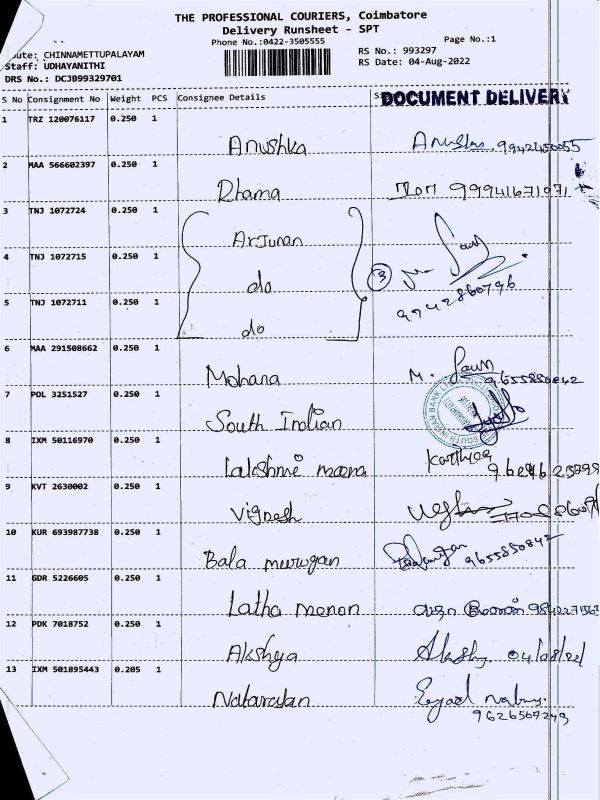 THE PROFESSIONAL COURIERS, Coimbatore
Delivery Runsheet - SPT
Phone No.:0422-3505555
Page No.:1
oute: CHINNAMETTUPALAYAM
RS No.: 993297
Staff: UDHAYANITHI
RS Date: 04-Aug-2022
DRS No.: DCJB99329701
S No Consignment No Weight PCS Consignee Details
DOCUMENT DELIVERY
1 TRZ 120076117 0.250 1
Anushka
2 MAA 566602397 0.250 1
Dhama 99941671071
3 TNJ 1072724 0.250 1
Arjunan
4 TNJ 1072715 0.250 1
do 3
9942860796
5 TNJ 1072711 0.250 1
do
6 MAA 291508662 0.250 1
Mohana M. 9655850842
7 POL 3251527 0.250 1
South Indian
SOUTH INDIAN BANK LTD
8 IXM 50116970 0.250 1
Lakshmi meena
9 KVT 2630002 0.250 1
Vignesh
10 KUR 693987738 0.250 1
Bala murugan 9655850842
11 GDR 5226605 0.250 1
Latha menon லதா மேனன்
12 PDK 7018752 0.250 1
Akshya 04/08/22
13 IXM 501895443 0.205 1
Natarajan
9626567249